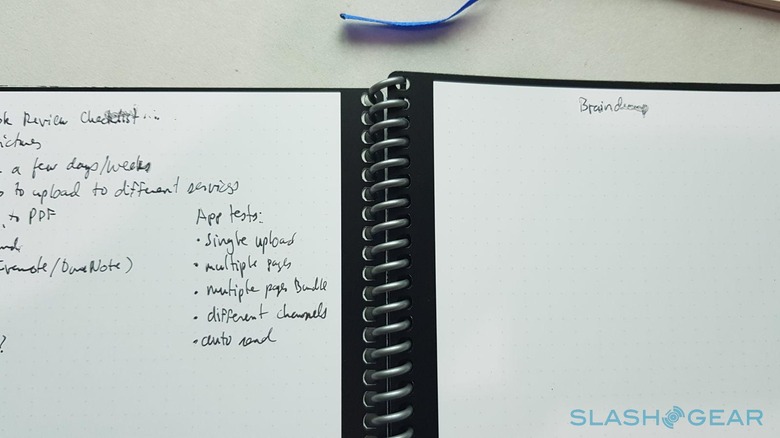 Review Checklist...
ictures
a few days/weeks
to upload to different services
to PDF
Evernote/OneNote)
?
App tests:
• Single upload
• multiple pages
• mutiple pages Bundle
• different channels
• auto send
Braindump
SLASHGEAR